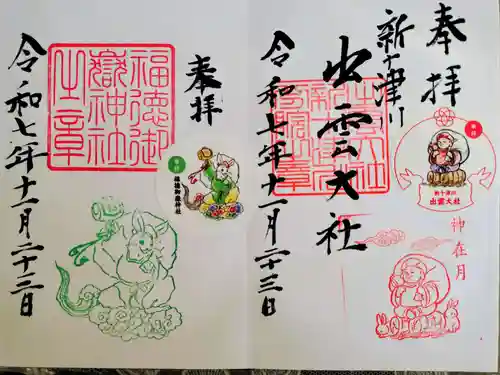 奉拝
新十津川
出雲大社
令和七年十一月二十三日
神在月
新十津川
出雲大社
奉拝
福徳御
嶽神社
之章
福徳御嶽神社
令和七年十一月二十三日